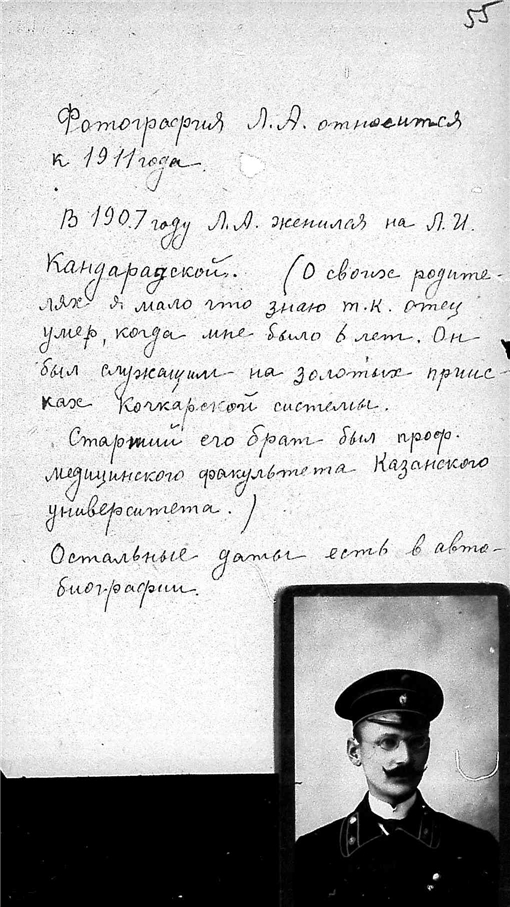 55
Фотография Л.А. относится
к 1911 года.
В 1907 году Л.А. женился на Л.И.
Кандарадской. (О своих родите-
лях я мало что знаю т.к. отец
умер, когда мне было 6 лет. Он
был служащим на золотых приис-
ках Кочкарской системы.
Старший его брат был проф.
медицинского факультета Казанского
университета.)
Остальные даты есть в авто-
биографии.